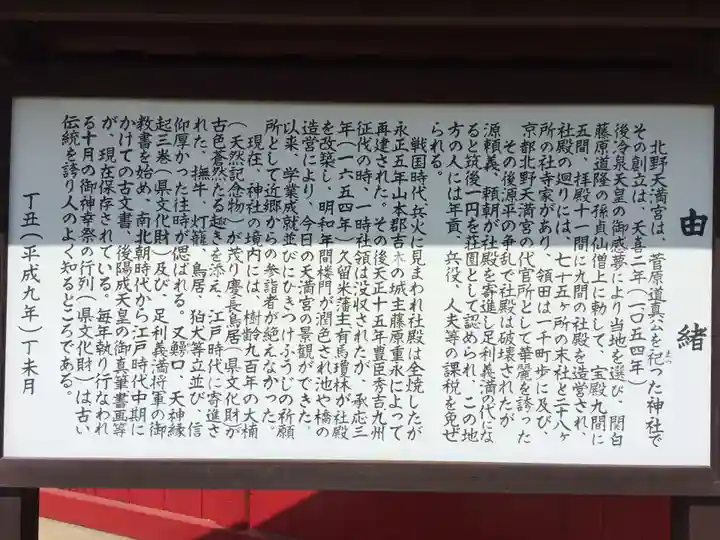 由緒
北野天満宮は、菅原道真公を祀った神社で
まつ
その創立は、天喜二年(一〇五四年)
後冷泉天皇の御感夢により当地を選び、関白
藤原道隆の孫貞仙僧上に勅して、宝殿九間に
五間、拝殿十一間に九間の社殿を造営され、
社殿の廻りには、七十五ヶ所の末社と二十八ヶ
所の社寺家があり、領田は一千町歩に及び、
京都北野天満宮の代官所として華麗を誇った
その後源平の争乱で社殿は破壊されたが
源頼義、頼朝が社殿を寄進し足利義満の代にな
ると筑後一円を荘園として認められ、この地
方の人には年貢、兵役、人夫等の課税を免ぜ
られる。
戦国時代、兵火に見まわれ社殿は全焼したが
永正五年山本郡吉木の城主藤原重永によって
再建された。その後天正十五年豊臣秀吉九州
征伐の時、一時社領は没収されたが、承応三
年(一六五四年)久留米藩主有馬瓊林が社殿
を改築し、明和年間楼門が潤色され池や橋の
造営により、今日の天満宮の景観ができた。
以来、学業成就並びにひきつけふうじの祈願
所として近郷からの参詣者が絶えなかった。
現在、神社の境内には、樹齢九百年の大楠
(天然記念物)が茂り慶長鳥居(県文化財)が
古色蒼然たる趣きを添え、江戸時代に寄進さ
れた、撫牛、灯籠、鳥居、狛犬等立並び、信
仰厚かった往時が偲ばれる。又鰐口、天神縁
起三巻(県文化財)及び、足利義満将軍の御
教書を始め、南北朝時代から江戸時代中期に
かけての古文書、後陽成天皇の御真筆書画等
が、現在保存されている。毎年執り行なわれ
る十月の御神幸祭の行列(県文化財)は古い
伝統を誇り人のよく知るところである。
丁丑(平成九年)丁未月